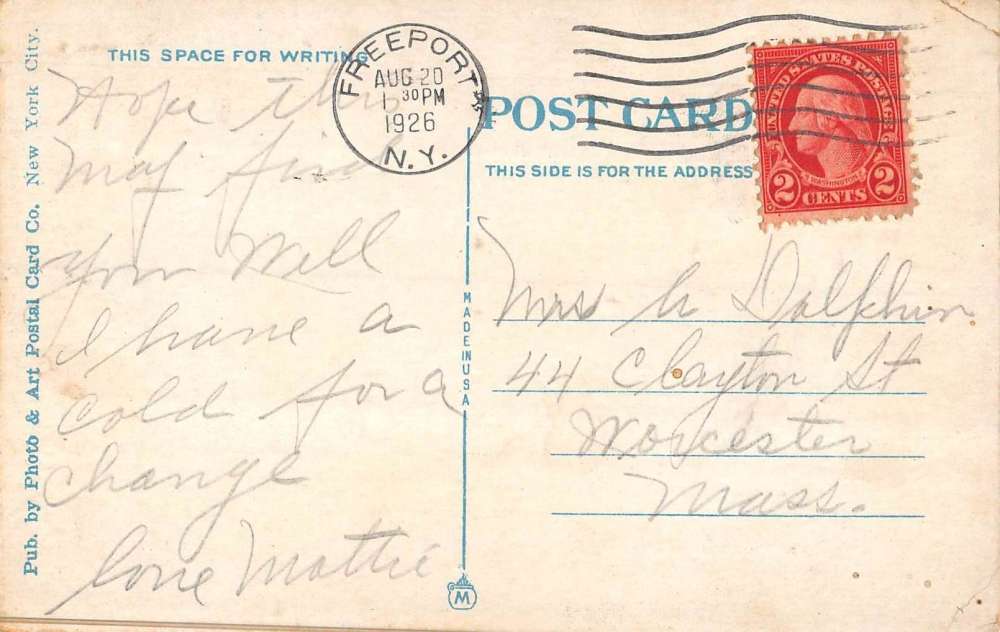 Pub. by Photo & Art Postal Card Co. New York City.
THIS SPACE FOR WRITING
Hope this
may find
you well
I have a
cold for a
change
love Mattie
FREEPORT
AUG 20
1 30 PM
1926
N.Y.
POST CARD
THIS SIDE IS FOR THE ADDRESS
UNITED STATES POSTAGE
WASHINGTON
2 CENTS 2
MADE IN USA
M
Mrs A Dolphin
44 Clayton St
Worcester
Mass.